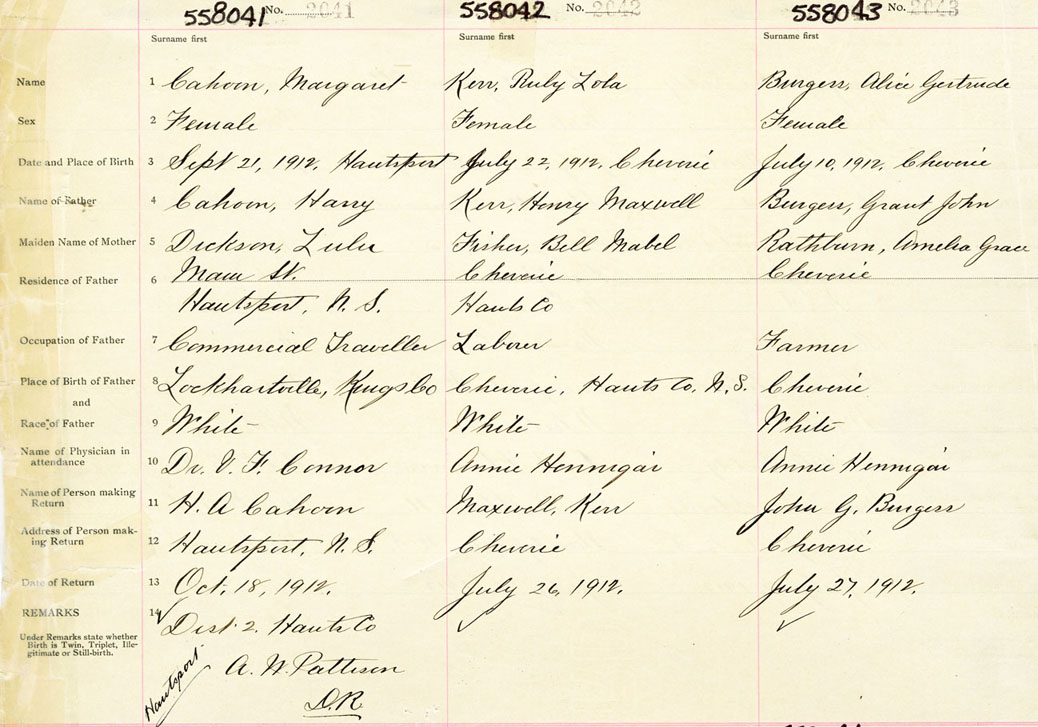 558041 No. 2041 558042 No. 2042 558043 No. 2043
Surname first Surname first Surname first
Name 1 Cahoon, Margaret Kerr, Ruby Lola Burgess, Alice Gertrude
Sex 2 Female Female Female
Date and Place of Birth 3 Sept 21, 1912, Hantsport July 22, 1912, Cheverie July 10, 1912, Cheverie
Name of Father 4 Cahoon, Harry Kerr, Henry Maxwell Burgess, Grant John
Maiden Name of Mother 5 Dickson, Lulu Fisher, Bell Mabel Rathburn, Amelia Grace
Residence of Father 6 Main St. Cheverie Cheverie
Hantsport, N. S. Hants Co
Occupation of Father 7 Commercial Traveller Laborer Farmer
Place of Birth of Father 8 Lockhartville, Kings Co Cheverie, Hants Co, N. S. Cheverie
and
Race of Father 9 White White White
Name of Physician in
attendance 10 Dr. V. F. Connor Annie Hennigar Annie Hennigar
Name of Person making
Return 11 H. A Cahoon Maxwell, Kerr John G. Burgess
Address of Person mak-
ing Return 12 Hantsport, N. S. Cheverie Cheverie
Date of Return 13 Oct. 18, 1912. July 26, 1912. July 27, 1912.
REMARKS 14 Dist. 2. Hants Co
Under Remarks state whether
Birth is Twin, Triplet, Ille-
gitimate or Still-birth.
Hantsport A. W. Pattison
D.R